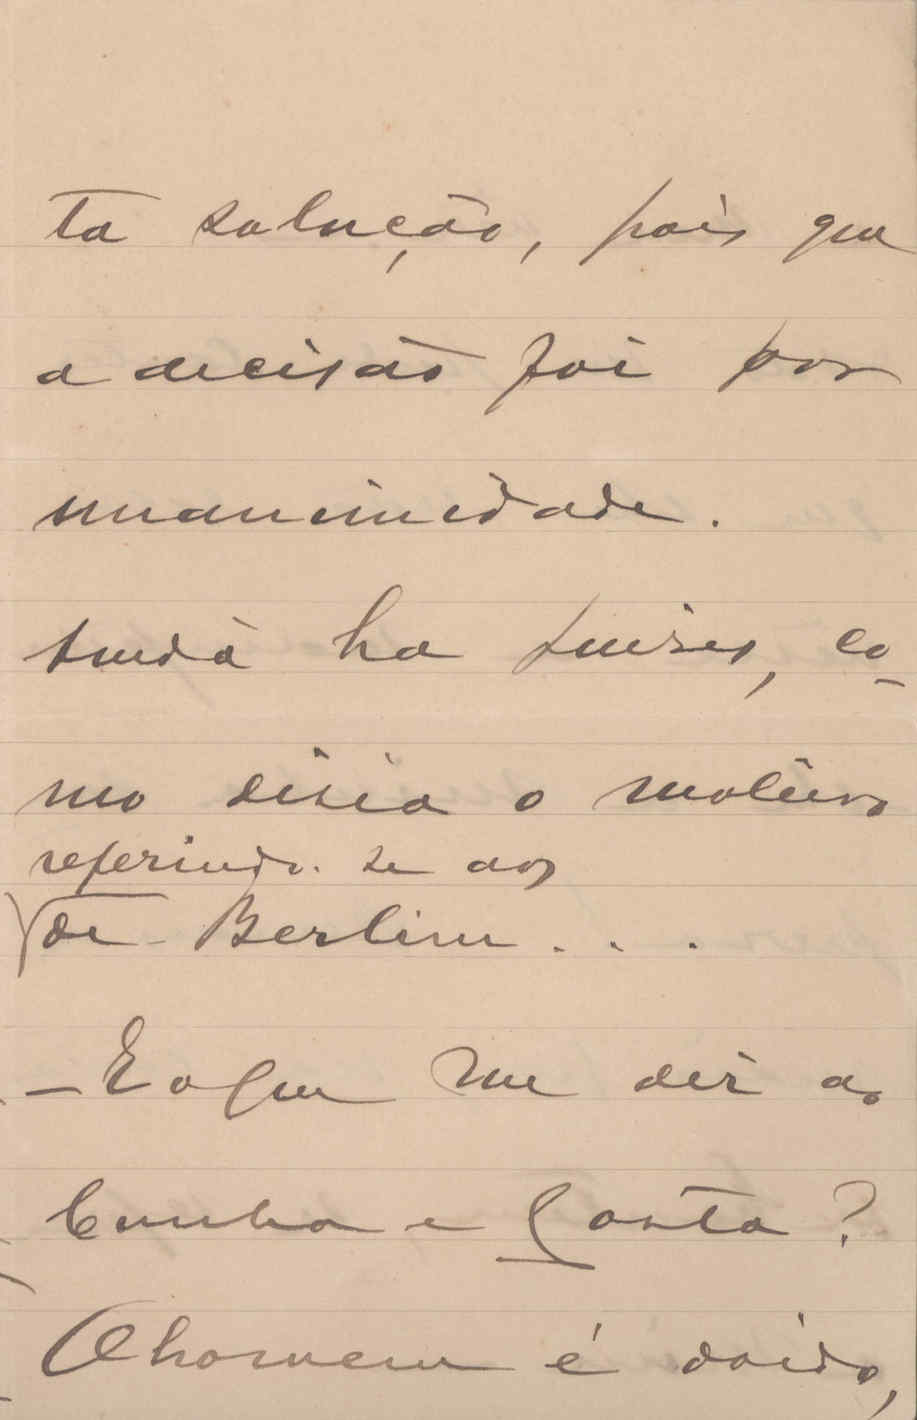 ta solução, pois que
a decisão foi por
unanimidade.
Ainda ha juizes, co-
mo disia o moleiro
referindo-se aos
de Berlim...
— E o que me diz ao
Cunha e Costa?
O homem é doido,